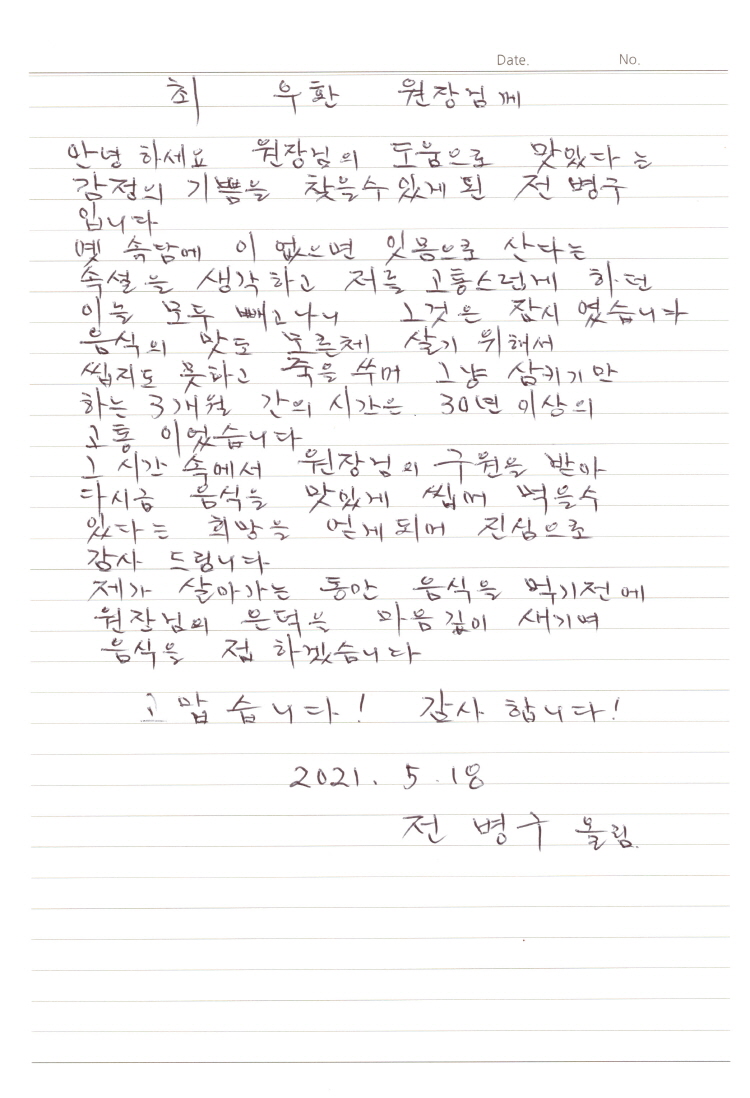 Date. No.
최 우환 원장님께
안녕 하세요 원장님의 도움으로 맛있다 는
감정의 기쁨을 찾을수 있게 된 전 병구
입니다
옛 속담에 이 없으면 잇몸으로 산다는
속설을 생각하고 저를 고통스런게 하던
이늘 모두 빼고나니 그것은 잠시 였습니다
음식의 맛도 모른체 살기 위해서
씹지도 못하고 죽을 쑤며 그냥 삼키기만
하는 3개월 간의 시간은 30년 이상의
고통 이었습니다
그 시간 속에서 원장님의 구원을 받아
다시금 음식을 맛있게 씹어 먹을수
있다는 희망을 얻게되어 진심으로
감사 드립니다
제가 살아가는 동안 음식을 먹기전에
원장님의 은덕을 마음깊이 새기며
음식을 접 하겠습니다
고맙습니다! 감사 합니다!
2021. 5. 18
전 병구 올림.